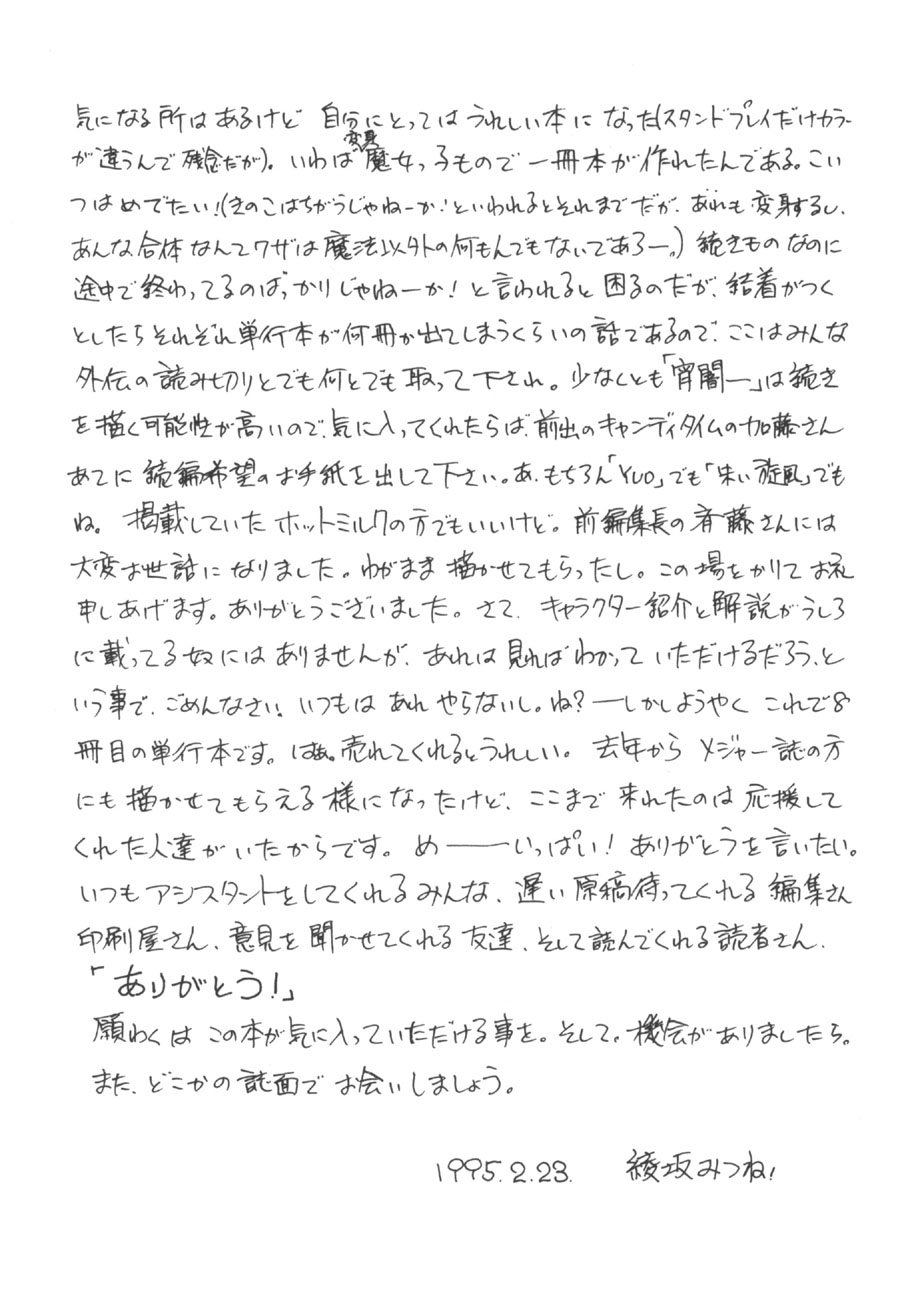 気になる所はあるけど 自分にとっては うれしい本に なった(スタンドプレイだけカラー
が違うんで残念だが)。いわば変身魔女っ子もので一冊本が作れたんである。こい
つはめでたい!(きのこはちがうじゃねーか!といわれるとそれまでだが、あれも変身するし、
あんな合体なんてワザは魔法以外の何もんでもないであろー。) 続きものなのに
途中で終わってるのばっかりじゃねーか!と言われると困るのだが、結着がつく
としたらそれぞれ単行本が何冊か出てしまうくらいの話であるので、ここはみんな
外伝の読み切りとでも何とでも取って下され。少なくとも「宵闇ー」は続き
を描く可能性が高いので、気に入ってくれたらば、前出のキャンディタイムの加藤さん
あてに続編希望のお手紙を出して下さい。あ、もちろん「YUO」でも「朱い旋風」でも
ね。 掲載していたホットミルクの方でもいいけど。前編集長の斉藤さんには
大変お世話になりました。わがまま描かせてもらったし。この場をかりてお礼
申しあげます。ありがとうございました。さて、キャラクター紹介と解説がうしろ
に載ってる奴にはありませんが、あれは見ればわかっていただけるだろう、と
いう事で、ごめんなさい。いつもはあれやらないし。ね?ーしかしようやくこれで8
冊目の単行本です。はぁ。売れてくれるとうれしい。去年からメジャー誌の方
にも描かせてもらえる様になったけど、ここまで来れたのは応援して
くれた人達がいたからです。めーーいっぱい!ありがとうを言いたい。
いつもアシスタントをしてくれるみんな、遅い原稿待ってくれる編集さん
印刷屋さん、意見を聞かせてくれる友達、そして読んでくれる読者さん、
「ありがとう!」
願わくはこの本が気に入っていただける事を。そして。機会がありましたら。
また、どこかの誌面でお会いしましょう。
1995.2.23. 綾坂みつね!